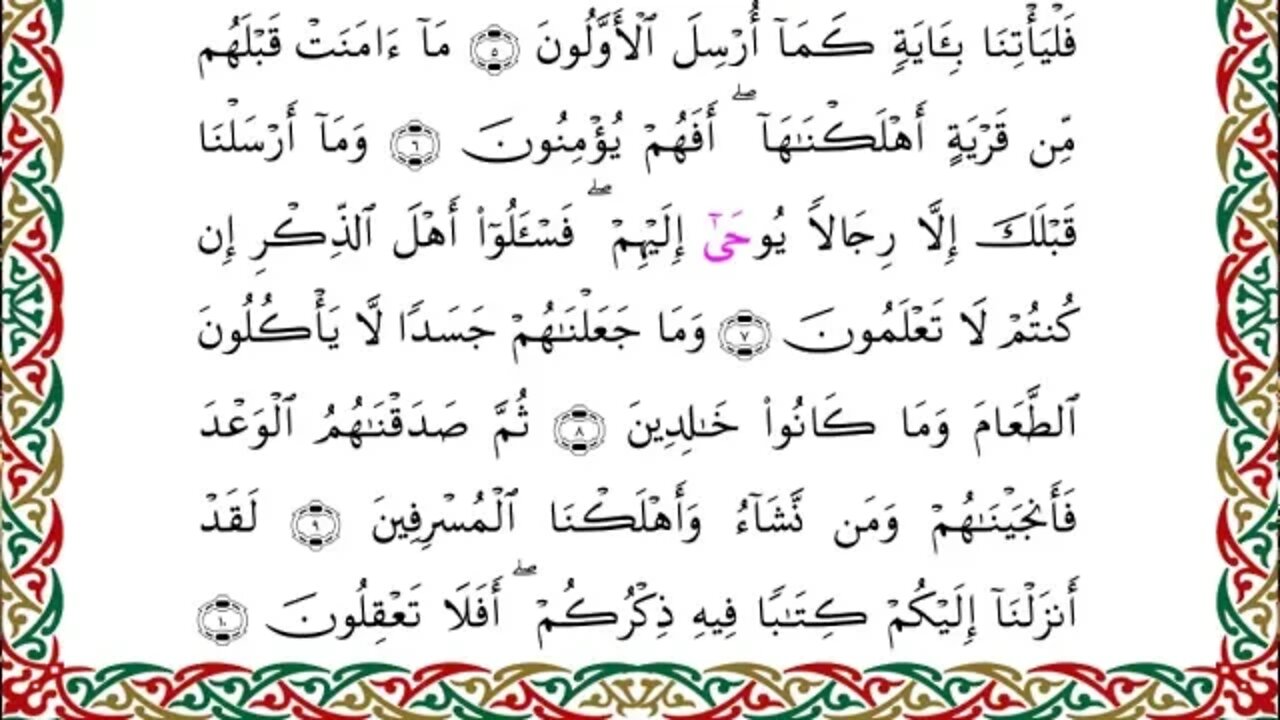 فَلْيَأْتِنَا بِـَٔايَةٍ كَمَآ أُرْسِلَ ٱلْأَوَّلُونَ ٥ مَآ ءَامَنَتْ قَبْلَهُم
مِّن قَرْيَةٍ أَهْلَكْنَٰهَآ ۖ أَفَهُمْ يُؤْمِنُونَ ٦ وَمَآ أَرْسَلْنَا
قَبْلَكَ إِلَّا رِجَالًا يُوحَىٰٓ إِلَيْهِمْ ۖ فَسْـَٔلُوٓا۟ أَهْلَ ٱلذِّكْرِ إِن
كُنتُمْ لَا تَعْلَمُونَ ٧ وَمَا جَعَلْنَٰهُمْ جَسَدًا لَّا يَأْكُلُونَ
ٱلطَّعَامَ وَمَا كَانُوا۟ خَٰلِدِينَ ٨ ثُمَّ صَدَقْنَٰهُمُ ٱلْوَعْدَ
فَأَنجَيْنَٰهُمْ وَمَن نَّشَآءُ وَأَهْلَكْنَا ٱلْمُسْرِفِينَ ٩ لَقَدْ
أَنزَلْنَآ إِلَيْكُمْ كِتَٰبًا فِيهِ ذِكْرُكُمْ ۖ أَفَلَا تَعْقِلُونَ ١٠